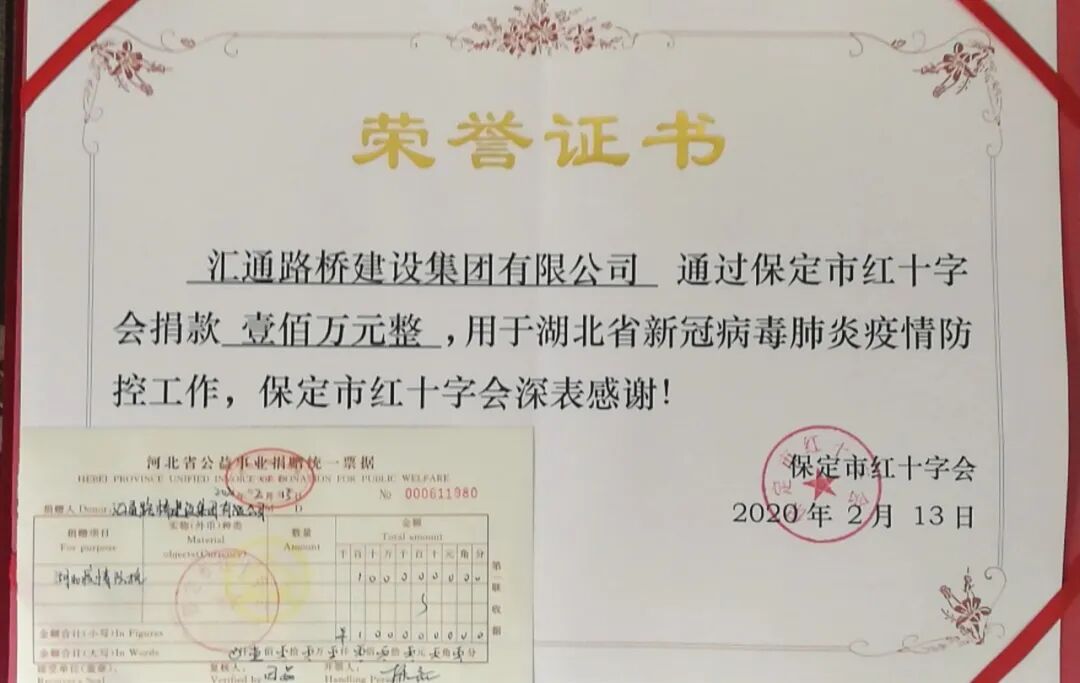 荣誉证书
汇通路桥建设集团有限公司 通过保定市红十字
会捐款 壹佰万元整 ，用于湖北省新冠病毒肺炎疫情防
控工作，保定市红十字会深表感谢！
保定市红十字会
2020 年 2 月 13 日
河北省公益事业捐赠统一票据
HEBEI PROVINCE UNIFIED INVOICE OF DONATION FOR PUBLIC WELFARE
2月13日
No 000611980
捐赠人 Donor: 汇通路桥建设集团有限公司
捐赠项目 实物(外币)种类 数量 金额
For purpose Material objects(Currency) Amount Total amount
千 百 十 万 千 百 十 元 角 分
湖北疫情防控 1 0 0 0 0 0 0 0 0
第一联 收据
金额合计(小写)In Figures ¥ 1 0 0 0 0 0 0 0 0
金额合计(大写)In Words 壹佰零拾零万零仟零佰零拾零元零角零分
复核人: 开票人:
Verified by Handling Person